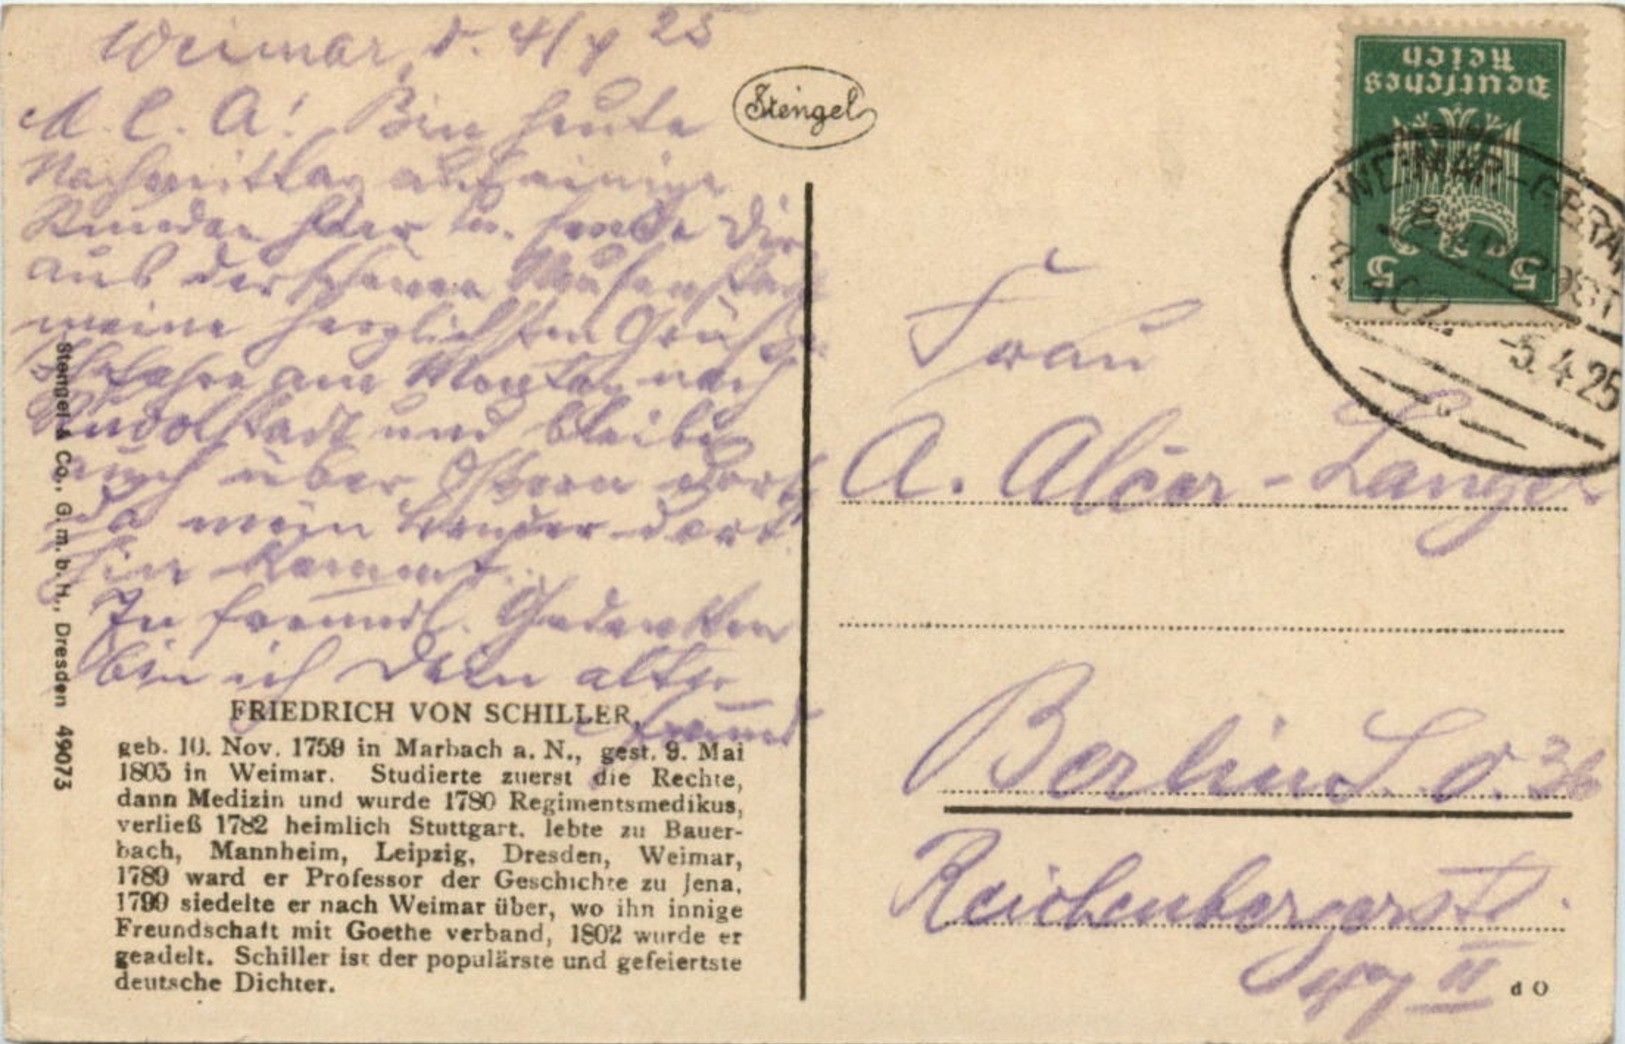 Weimar, d. 4/4 25
M. l. A! Bin heute
Nachmittag auf einige
Stunden hier u. sende Dir
aus der schönen Musenstadt
meine herzlichsten Grüße.
Ich fahre am Montag nach
Rudolstadt und bleibe
auch über Ostern dort,
da mein Bruder dort
hin kommt.
In freundl. Gedenken
bin ich Dein alter
Freund
FRIEDRICH VON SCHILLER,
geb. 10. Nov. 1759 in Marbach a. N., gest. 9. Mai
1805 in Weimar. Studierte zuerst die Rechte,
dann Medizin und wurde 1780 Regimentsmedikus,
verließ 1782 heimlich Stuttgart, lebte zu Bauer-
bach, Mannheim, Leipzig, Dresden, Weimar,
1789 ward er Professor der Geschichte zu Jena,
1799 siedelte er nach Weimar über, wo ihn innige
Freundschaft mit Goethe verband, 1802 wurde er
geadelt. Schiller ist der populärste und gefeiertste
deutsche Dichter.
Stengel & Co., G. m. b. H., Dresden 49073
Stengel
Deutsches
Reich
5 5
WEIMAR-GERA
BAHNPOST
-5.4.25
Frau
A. Langer
Berlin S. O. 36
Reichenbergerstr.
47 II
d O